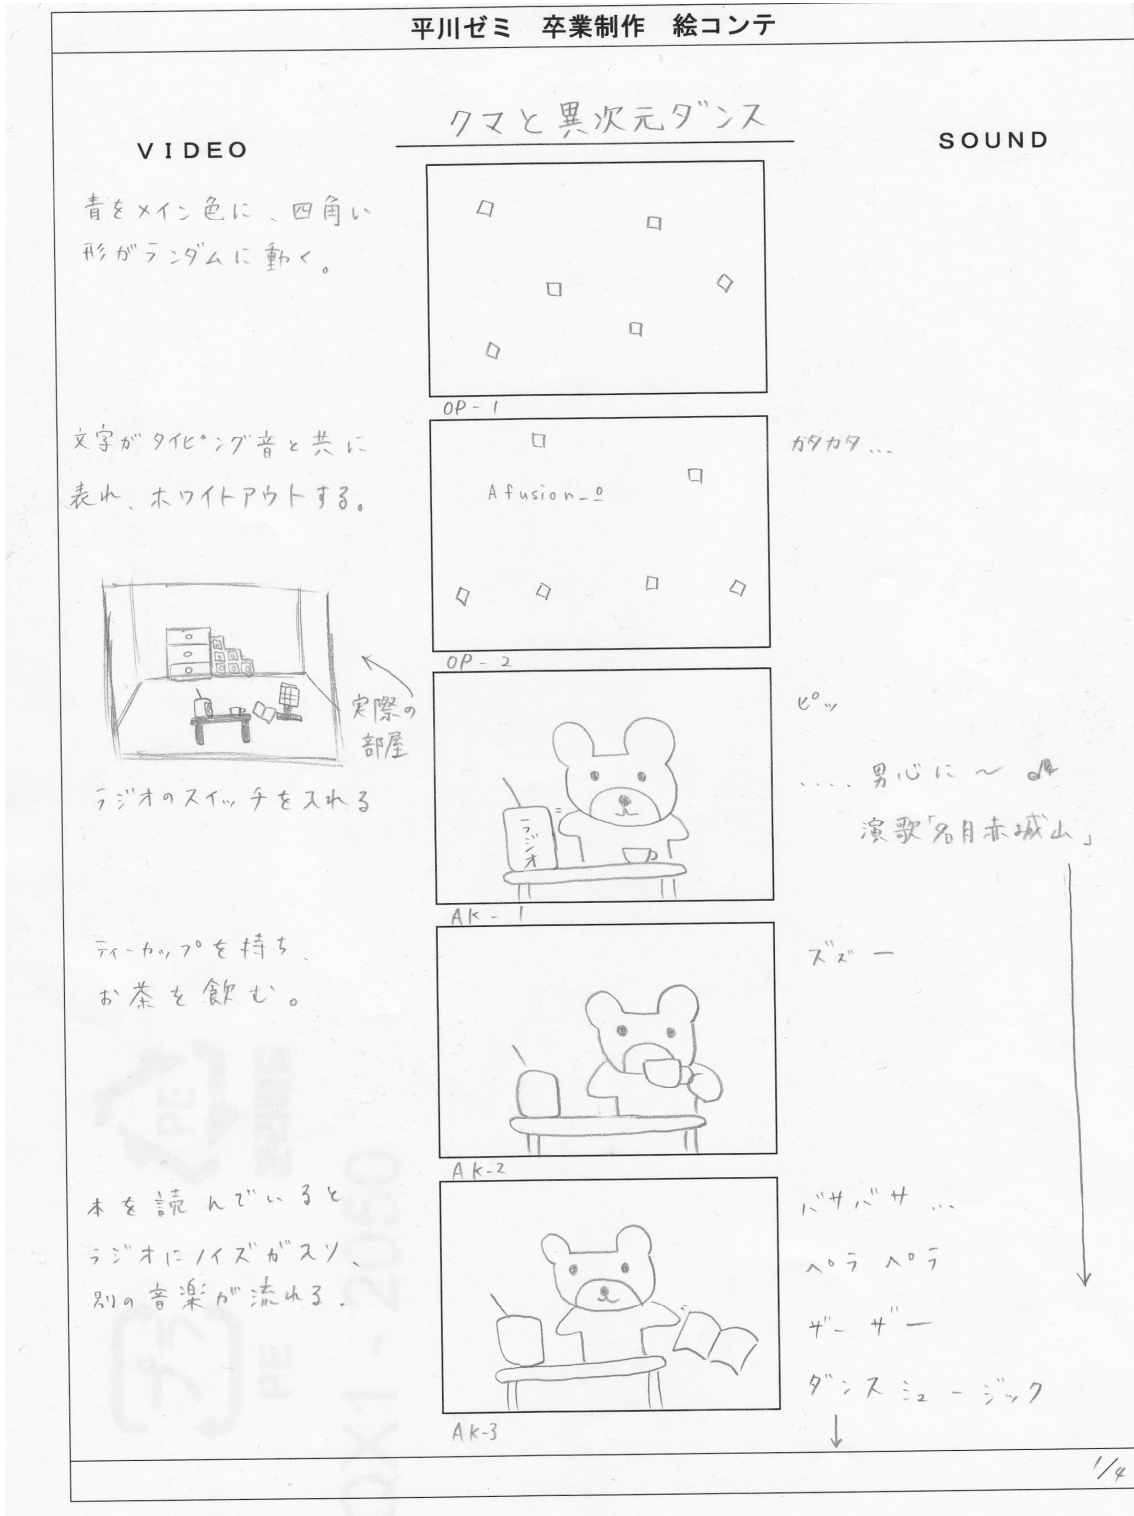 平川ゼミ 卒業制作 絵コンテ
クマと異次元ダンス
VIDEO
SOUND
青をメイン色に、四角い
形がランダムに動く。
OP-1
文字がタイピング音と共に
表れ、ホワイトアウトする。
Afusion_o
カタカタ...
OP-2
実際の
部屋
ラジオのスイッチを入れる
ラジオ
ピッ
..... 男心に〜♪
演歌「名月赤城山」
AK-1
ティーカップを持ち、
お茶を飲む。
ズズー
AK-2
本を読んでいると
ラジオにノイズが入り、
別の音楽が流れる.
バサバサ...
ペラペラ
ザーザー
ダンスミュージック
AK-3
1/4
プラ
PE
PE
2X1-2050